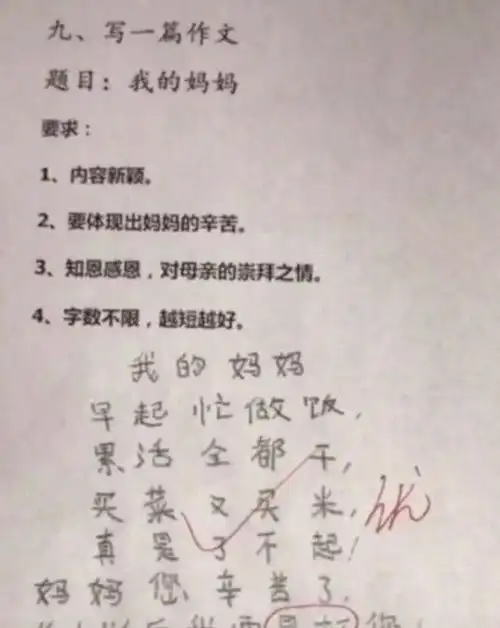 九、写一篇作文
题目：我的妈妈
要求：
1、内容新颖。
2、要体现出妈妈的辛苦。
3、知恩感恩，对母亲的崇拜之情。
4、字数不限，越短越好。
我的妈妈
早起忙做饭，
累活全都干，
买菜又买米，
真是了不起！
优
妈妈您辛苦了，